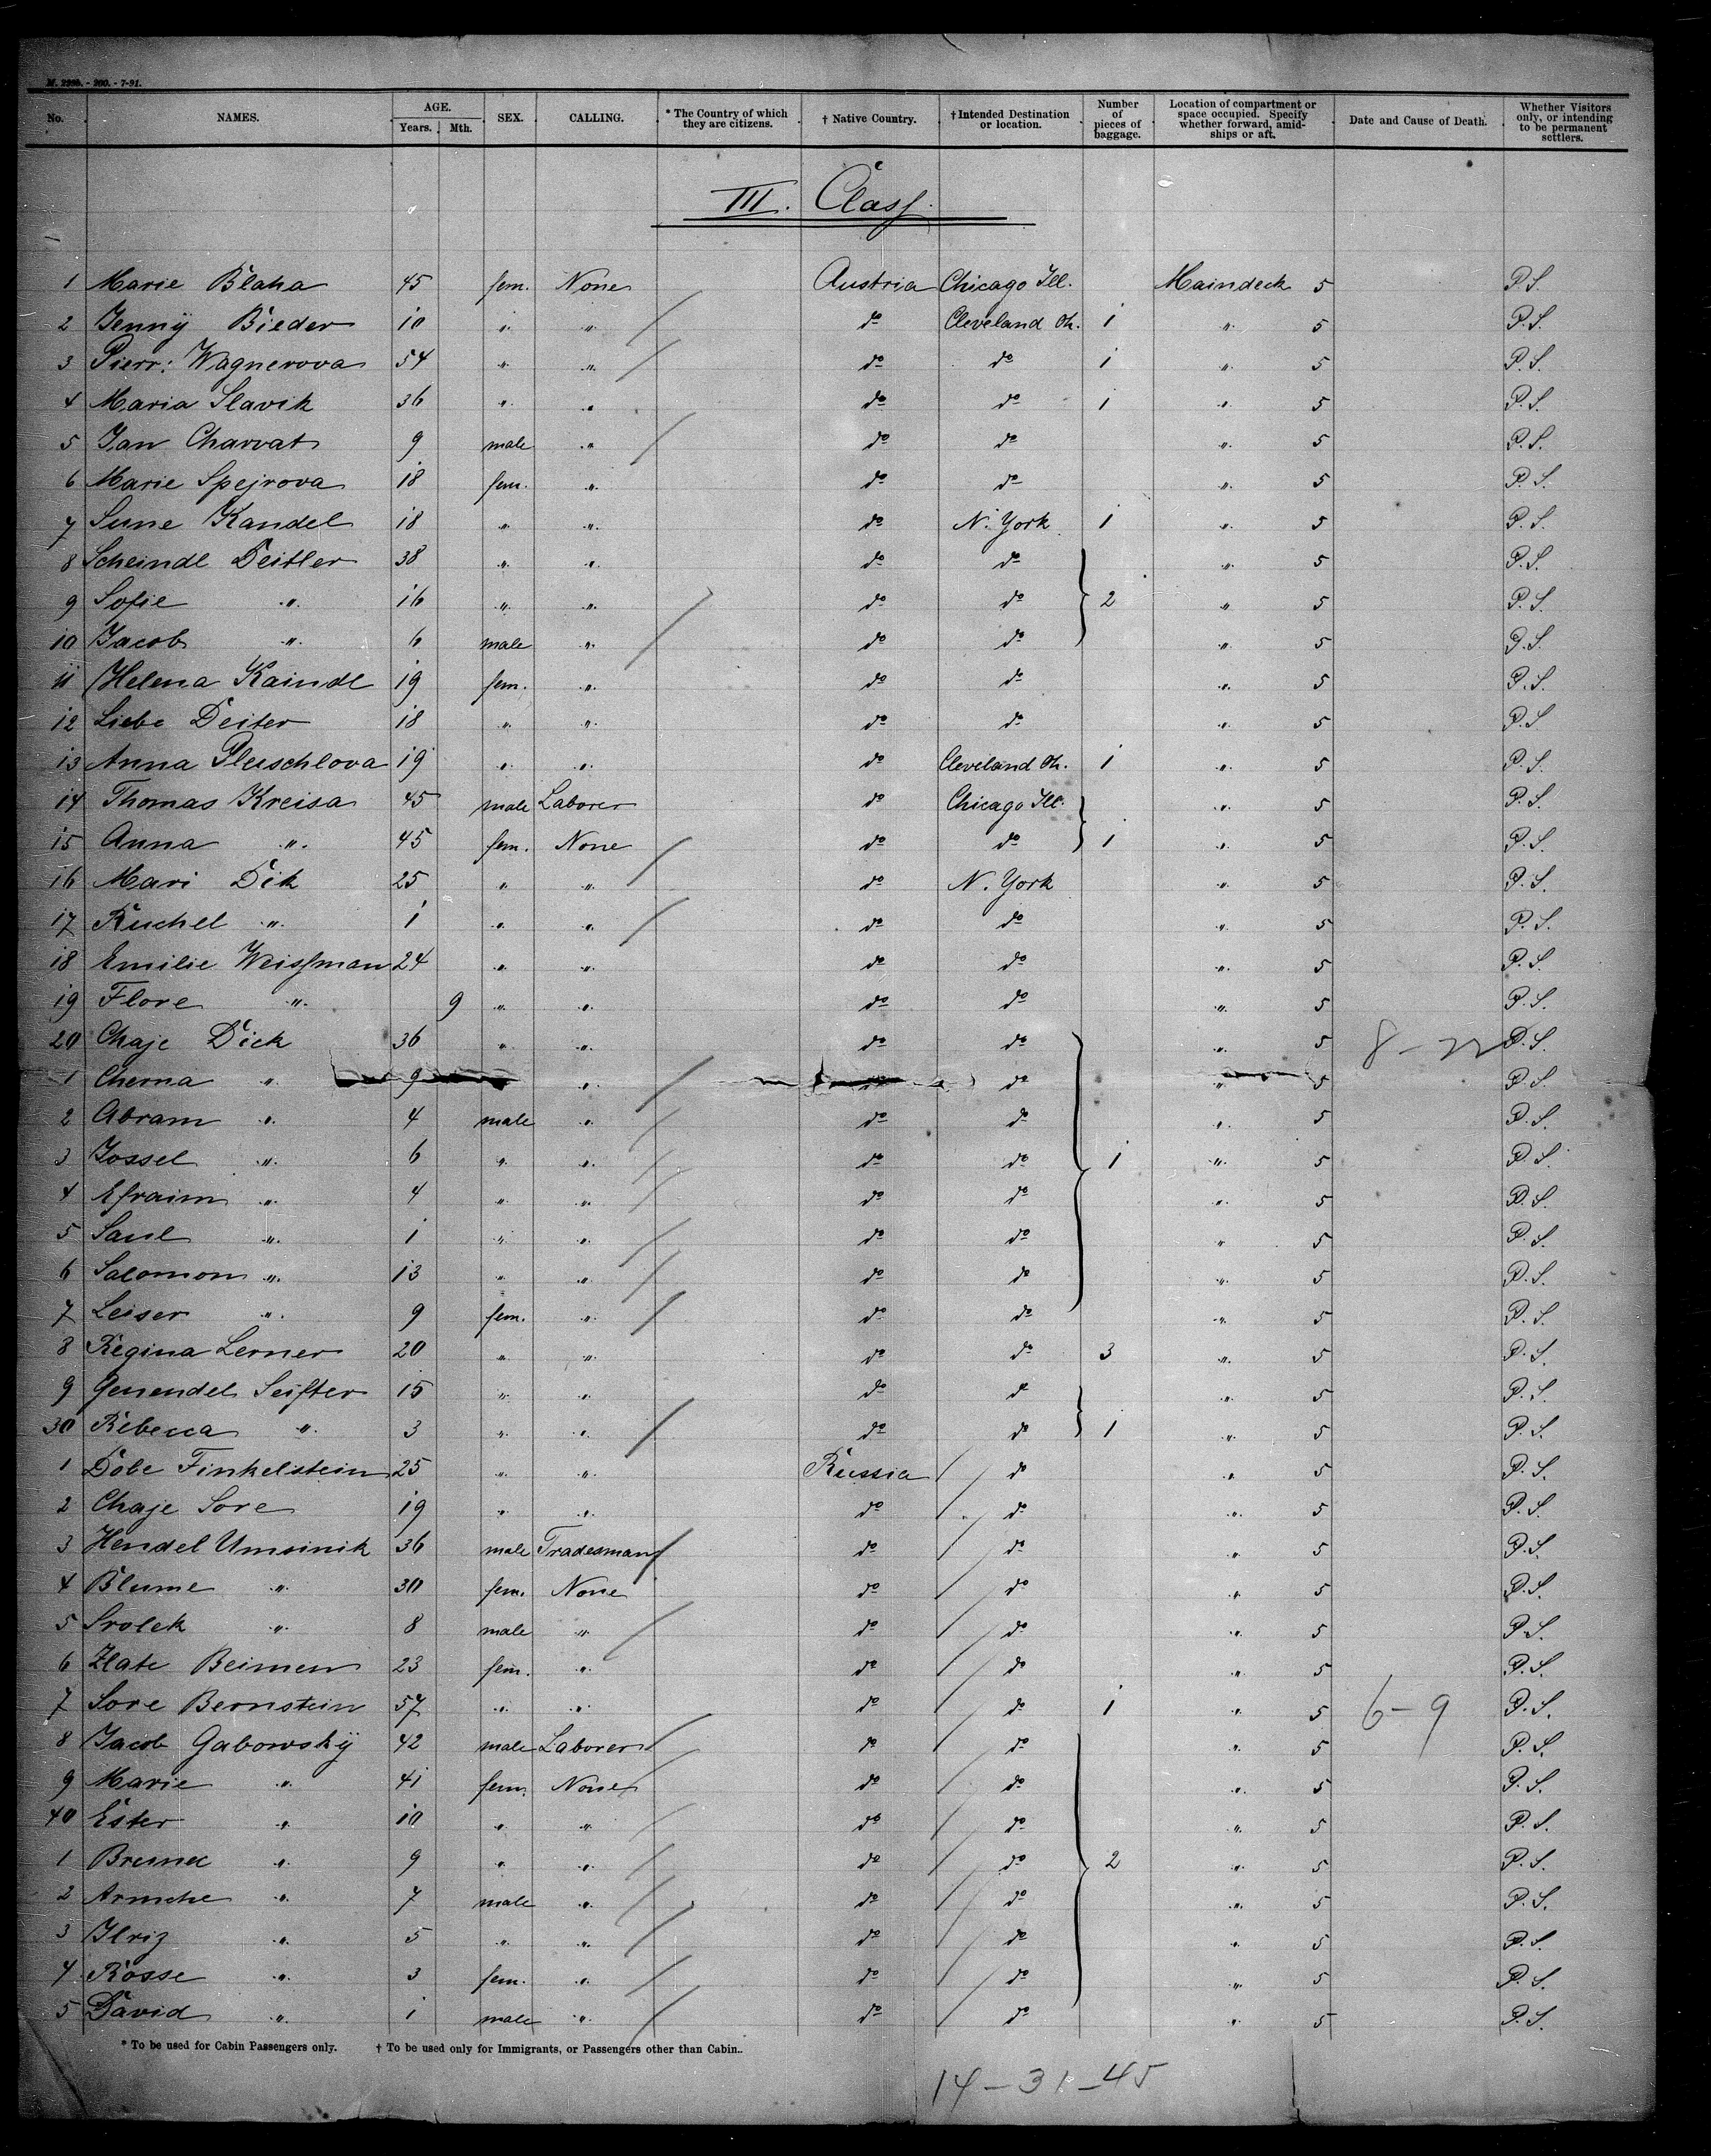 M. 299b. - 200. - 7-91.
No. NAMES. AGE. Years. Mth. SEX. CALLING. * The Country of which they are citizens. † Native Country. † Intended Destination or location. Number of pieces of baggage. Location of compartment or space occupied. Specify whether forward, amidships or aft. Date and Cause of Death. Whether Visitors only, or intending to be permanent settlers.
III. Class.
1 Marie Blaha 45 fem. None Austria Chicago Ill. Maindeck 5 P.S.
2 Jenny Bieder 10 " " do Cleveland Oh. 1 " 5 P.S.
3 Pierr: Wagnerova 54 " " do do 1 " 5 P.S.
4 Maria Slavik 36 " " do do 1 " 5 P.S.
5 Jan Charvat 9 male " do do " 5 P.S.
6 Marie Spejrova 18 fem. " do do " 5 P.S.
7 Sune Kandel 18 " " do N. York 1 " 5 P.S.
8 Scheindl Deitler 38 " " do do " 5 P.S.
9 Sofie " 16 " " do do 2 " 5 P.S.
10 Jacob " 6 male " do do " 5 P.S.
11 Helena Kaindl 19 fem. " do do " 5 P.S.
12 Liebe Deiter 18 " " do do " 5 P.S.
13 Anna Pleuschlova 19 " " do Cleveland Oh. 1 " 5 P.S.
14 Thomas Kreisa 45 male Laborer do Chicago Ill. " 5 P.S.
15 Anna " 45 fem. None do do 1 " 5 P.S.
16 Mari Dik 25 " " do N. York " 5 P.S.
17 Ruchel " 1 " " do do " 5 P.S.
18 Emilie Weissman 24 " " do do " 5 P.S.
19 Flore " 9 " " do do " 5 P.S.
20 Chaje Dick 36 " " do do " 5 8-22 P.S.
1 Chema " 9 " do " 5 P.S.
2 Abram " 4 male " do do " 5 P.S.
3 Jossel " 6 " " do do 1 " 5 P.S.
4 Efraim " 4 " " do do " 5 P.S.
5 Saul " 1 " " do do " 5 P.S.
6 Salomon " 13 " " do do " 5 P.S.
7 Leiser " 9 fem. " do do " 5 P.S.
8 Regina Lerner 20 " " do do 3 " 5 P.S.
9 Genendel Seifter 15 " " do do " 5 P.S.
30 Rebecca " 3 " " do do 1 " 5 P.S.
1 Dobe Finkelstein 25 " " Russia do " 5 P.S.
2 Chaje Sore 19 " " do do " 5 P.S.
3 Hendel Umsinik 36 male Tradesman do do " 5 P.S.
4 Blume " 30 fem. None do do " 5 P.S.
5 Srolek " 8 male " do do " 5 P.S.
6 Zlate Beimen 23 fem. " do do " 5 P.S.
7 Sore Bernstein 57 " " do do 1 " 5 6-9 P.S.
8 Jacob Gabowsky 42 male Laborer do do " 5 P.S.
9 Marie " 41 fem. None do do " 5 P.S.
40 Ester " 10 " " do do " 5 P.S.
1 Breina " 9 " " do do 2 " 5 P.S.
2 Armche " 7 male " do do " 5 P.S.
3 " 5 " " do do " 5 P.S.
4 Rosse " 3 fem. " do do " 5 P.S.
5 David " 1 male " do do " 5 P.S.
* To be used for Cabin Passengers only. † To be used only for Immigrants, or Passengers other than Cabin..
14-31-45